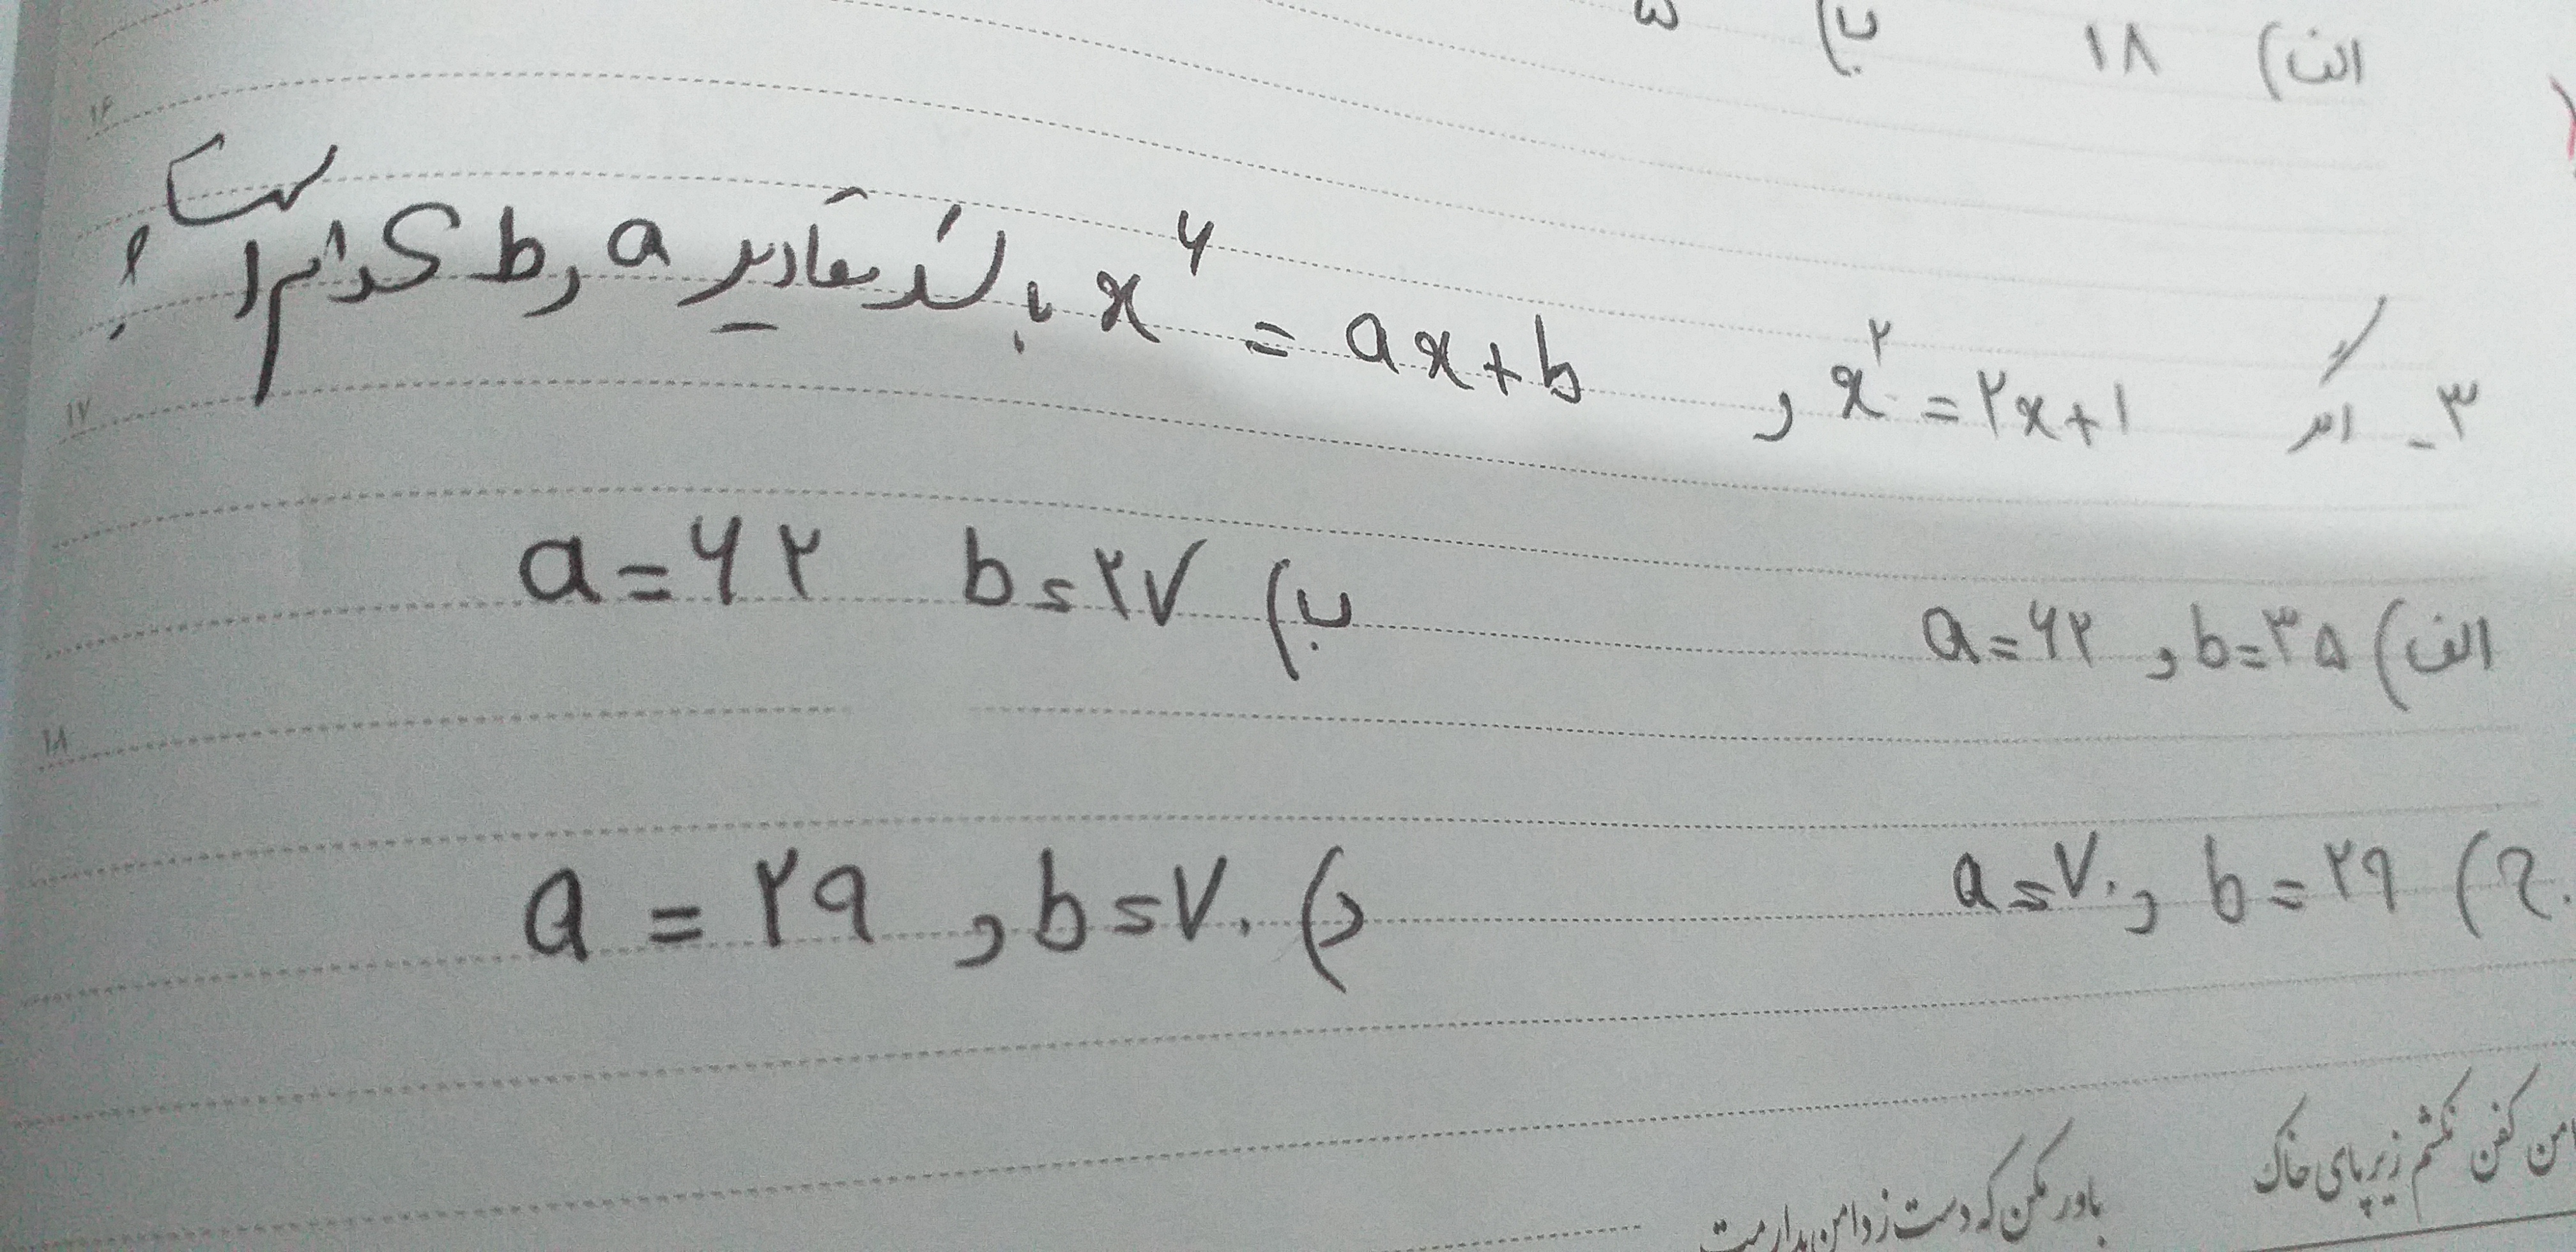 الف) ۱۸ ب) ۵
۳- اگر x^۲ = ۲x+۱ و x^۶ = ax+b باشد مقادیر a و b کدام است؟
الف) a=۶۲ و b=۳۵ ب) a=۶۲ b=۲۷
ج) a=۷۰ و b=۲۹ د) a=۲۹ و b=۷۰
۱۶
۱۷
۱۸
کفن نکشم زیر پای خاک
باور مکن که دست ز دامن بدارمت